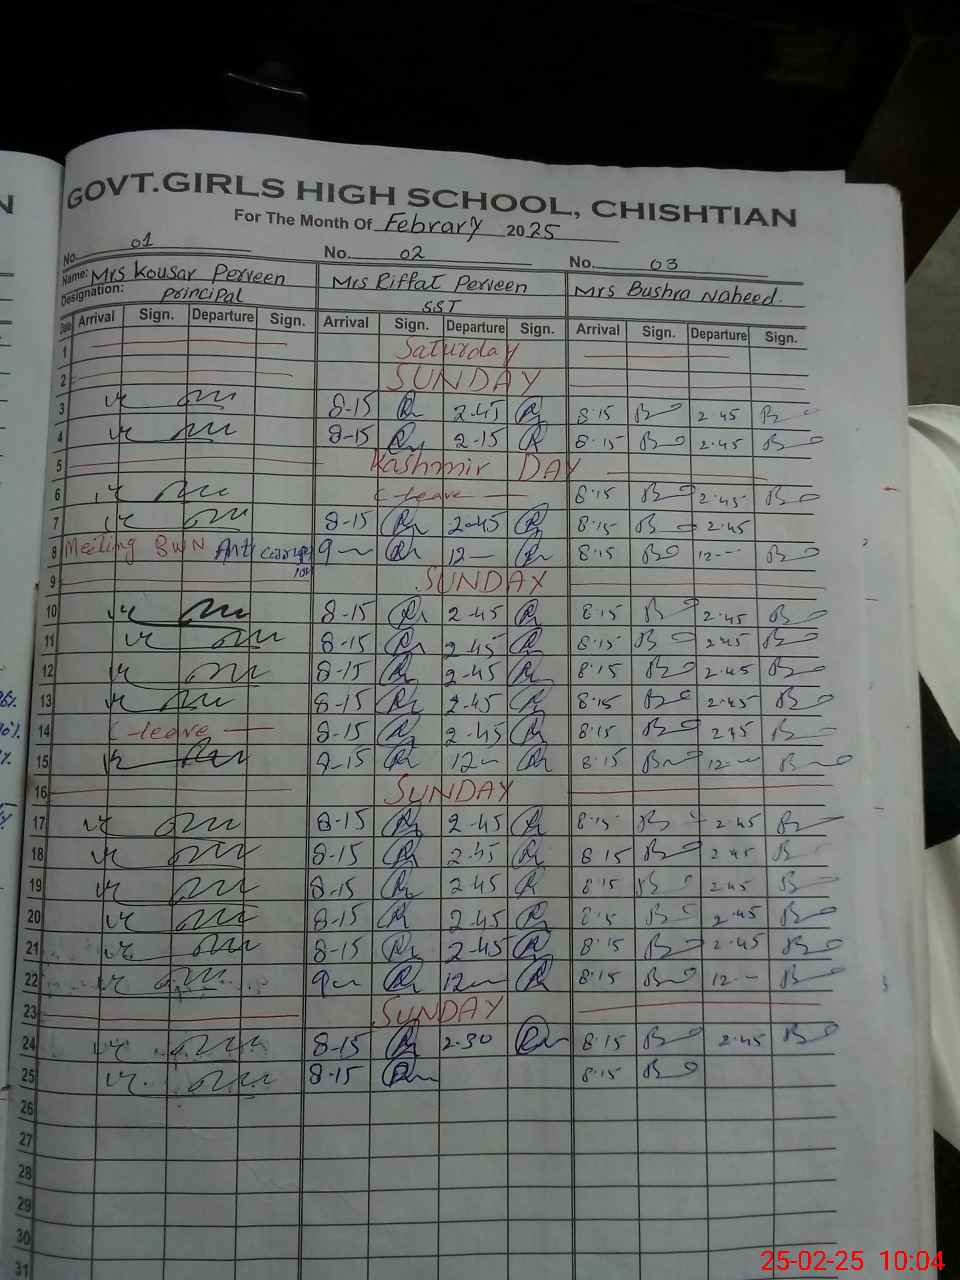 GOVT.GIRLS HIGH SCHOOL, CHISHTIAN
For The Month Of Febrary 2025
No. 01 No. 02 No. 03
Name: Mrs Kousar Perveen Mrs Riffat Perveen Mrs Bushra Naheed.
Designation: Principal SST
Date Arrival Sign. Departure Sign. Arrival Sign. Departure Sign. Arrival Sign. Departure Sign.
1 Saturday
2 SUNDAY
3 8-15 2-45 8:15 2.45
4 8-15 2-15 8:15 2.45
5 Kashmir DAY
6 C-leave 8:15 2.45
7 8-15 2-45 8:15 2.45
8 Meeting BWN Anti 9 12 8:15 12
9 SUNDAY
10 8-15 2-45 8:15 2.45
11 8-15 2-45 8:15 2.45
12 8-15 2-45 8:15 2.45
13 8-15 2-45 8:15 2.45
14 C-leave 8-15 2-45 8:15 2.45
15 8-15 12 8:15 12
16 SUNDAY
17 8-15 2-45 8:15 2.45
18 8-15 2.45 8:15 2.45
19 8-15 2-45 8:15 2.45
20 8-15 2-45 8:15 2.45
21 8-15 2-45 8:15 2.45
22 9 12 8:15 12
23 SUNDAY
24 8-15 2-30 8:15 2.45
25 8-15 8:15
26
27
28
29
30
31
25-02-25 10:04